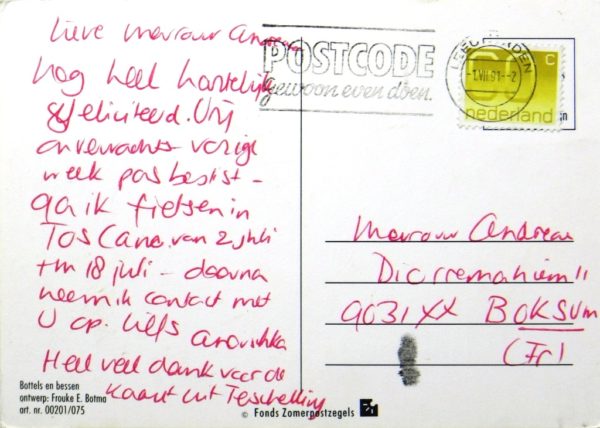 Lieve Mevrouw Andreae
nog heel hartelijk
gefeliciteerd. Vrij
onverwachts vorige
week pas beslist -
ga ik fietsen in
Toscane. van 2 juli
t/m 18 juli - daarna
neem ik contact met
U op. liefs Anoushka
Heel veel dank voor de
kaart uit Terschelling
Bottels en bessen
ontwerp: Frouke E. Botma
art. nr. 00201/075
© Fonds Zomerpostzegels
POSTCODE
gewoon even doen.
LEEUWARDEN
-1.VII.91.-2
60 c
nederland
Mevrouw Andreae
11
9031 XX BOKSUM
(Fr)